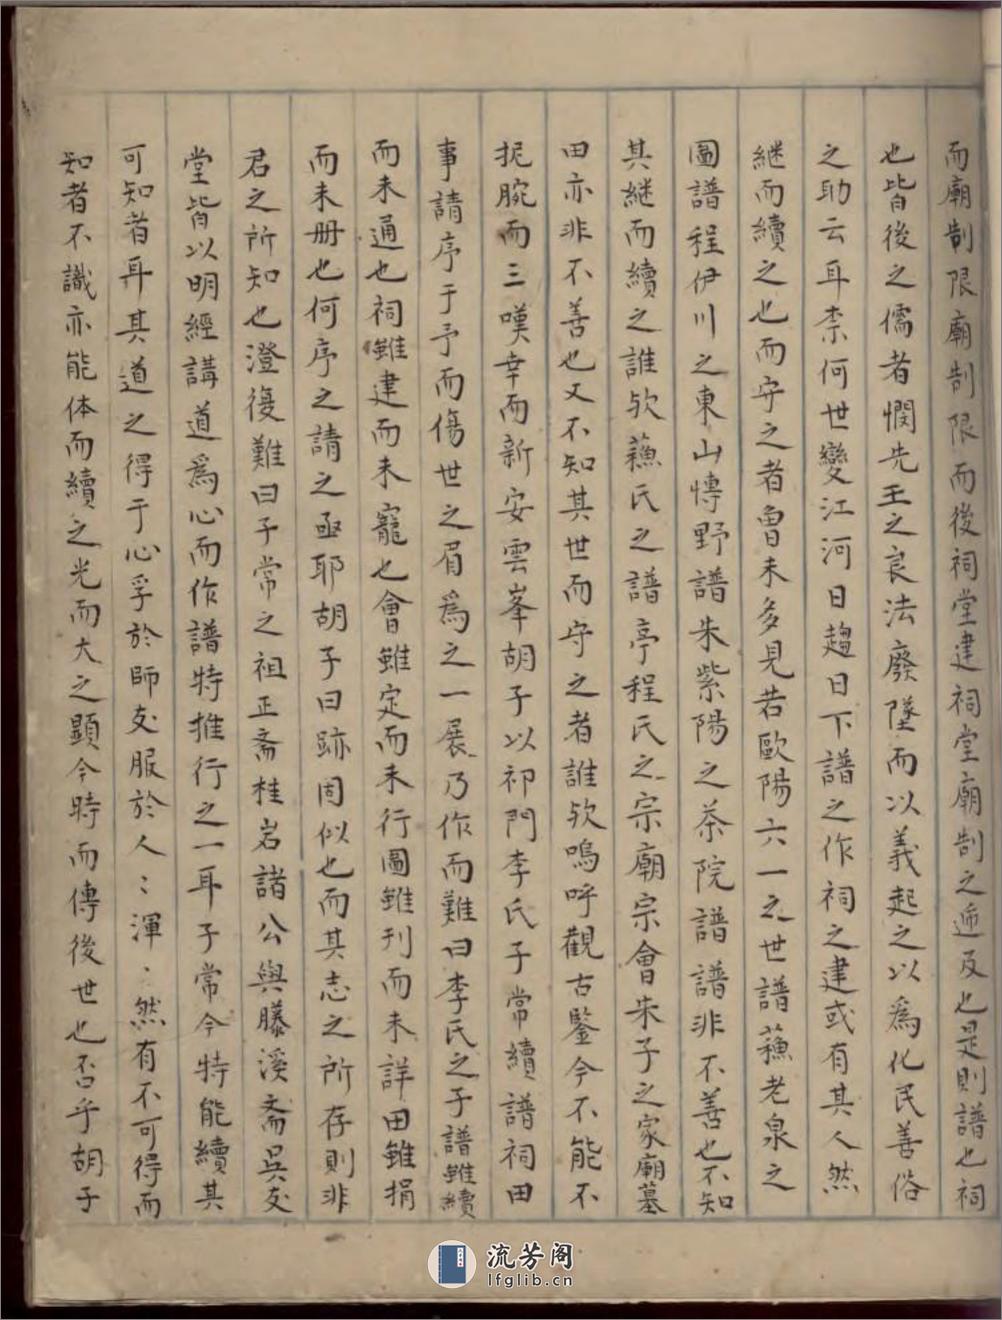 而廟制限廟制限而後祠堂建祠堂廟制之遞及也是則譜也祠
也皆後之儒者憫先王之良法廢墜而以義起之以為化民善俗
之助云耳柰何世變江河日趨日下譜之作祠之建或有其人然
継而續之也而守之者曾未多見若歐陽六一之世譜蘓老泉之
圖譜程伊川之東山愽野譜朱紫陽之茶院譜譜非不善也不知
其継而續之誰欤蘓氏之譜亭程氏之宗廟宗會朱子之家廟墓
田亦非不善也又不知其世而守之者誰欤嗚呼觀古鍳今不能不
扼腕而三嘆幸而新安雲峯胡子以祁門李氏子常續譜祠田
事請序于予而傷世之眉為之一展乃作而難曰李氏之子譜雖續
而未通也祠雖建而未寵也會雖定而未行圖雖刋而未詳田雖捐
而未册也何序之請之亟耶胡子曰跡固似也而其志之所存則非
君之所知也澄復難曰子常之祖正斋桂岩諸公與藤溪斋吳友
堂皆以明經講道為心而作譜特推行之一耳子常今特能續其
可知者耳其道之得于心孚於師友服於人〻渾〻然有不可得而
知者不識亦能体而續之光而大之顯今時而傳後世也否乎胡子
流芳阁
lfglib.cn